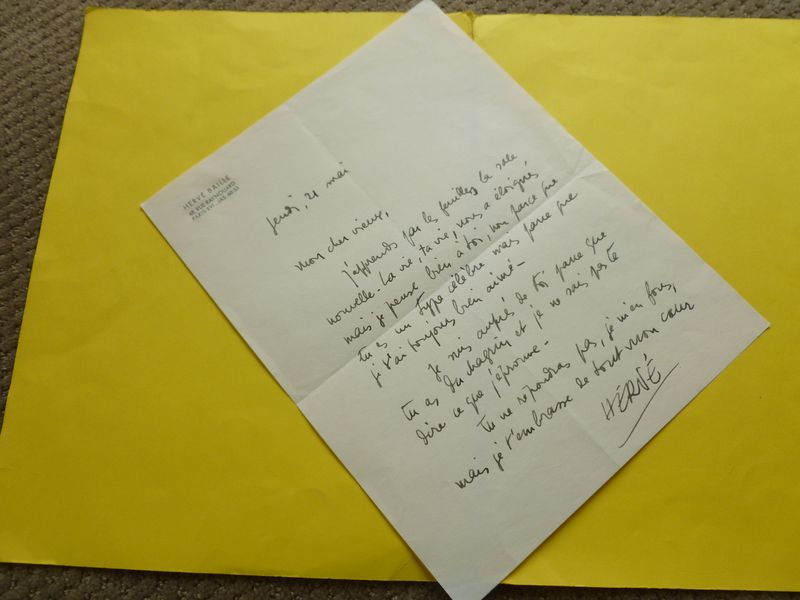 HERVÉ
48 RUE RAYNOUARD
PARIS XVIe. JAS
Jeudi, 21 mai
mon cher vieux,
j'apprends par les feuilles la sale
nouvelle. La vie, ta vie, nous a éloignés,
mais je pense bien à toi, non parce que
tu es un type célèbre mais parce que
je t'ai toujours bien aimé -
Je suis auprès de toi parce que
tu as du chagrin et je ne sais pas te
dire ce que j'éprouve -
Tu ne répondras pas, je m'en fous,
mais je t'embrasse de tout mon cœur
HERVÉ